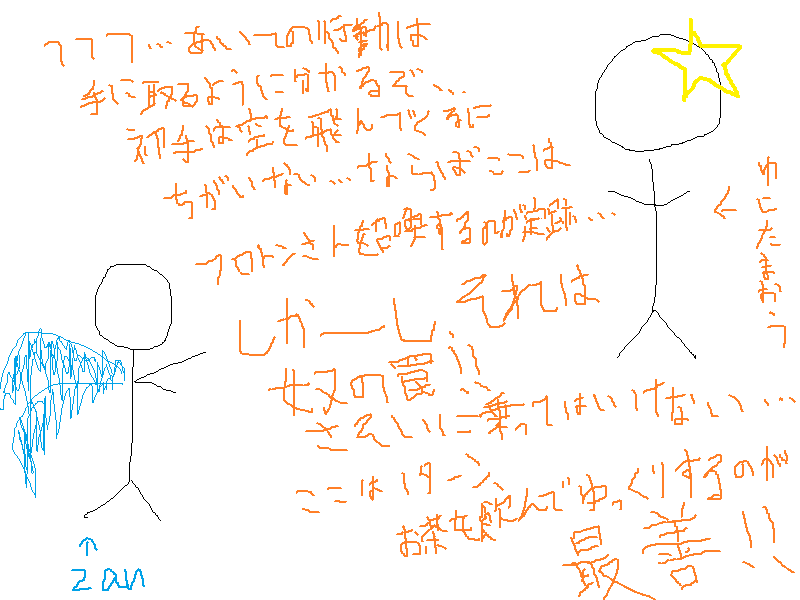 フフフ…あいての行動は
手に取るように分かるぞ…
初手は空を飛んでくるに
ちがいない…ならばここは
フロトンさんを召喚するのが定跡…
しかーし、それは
奴の罠!!
さそいに乗ってはいけない…
ここは1ターン、
お茶を飲んでゆっくりするのが
最善!!
ゆにたまおう
zan